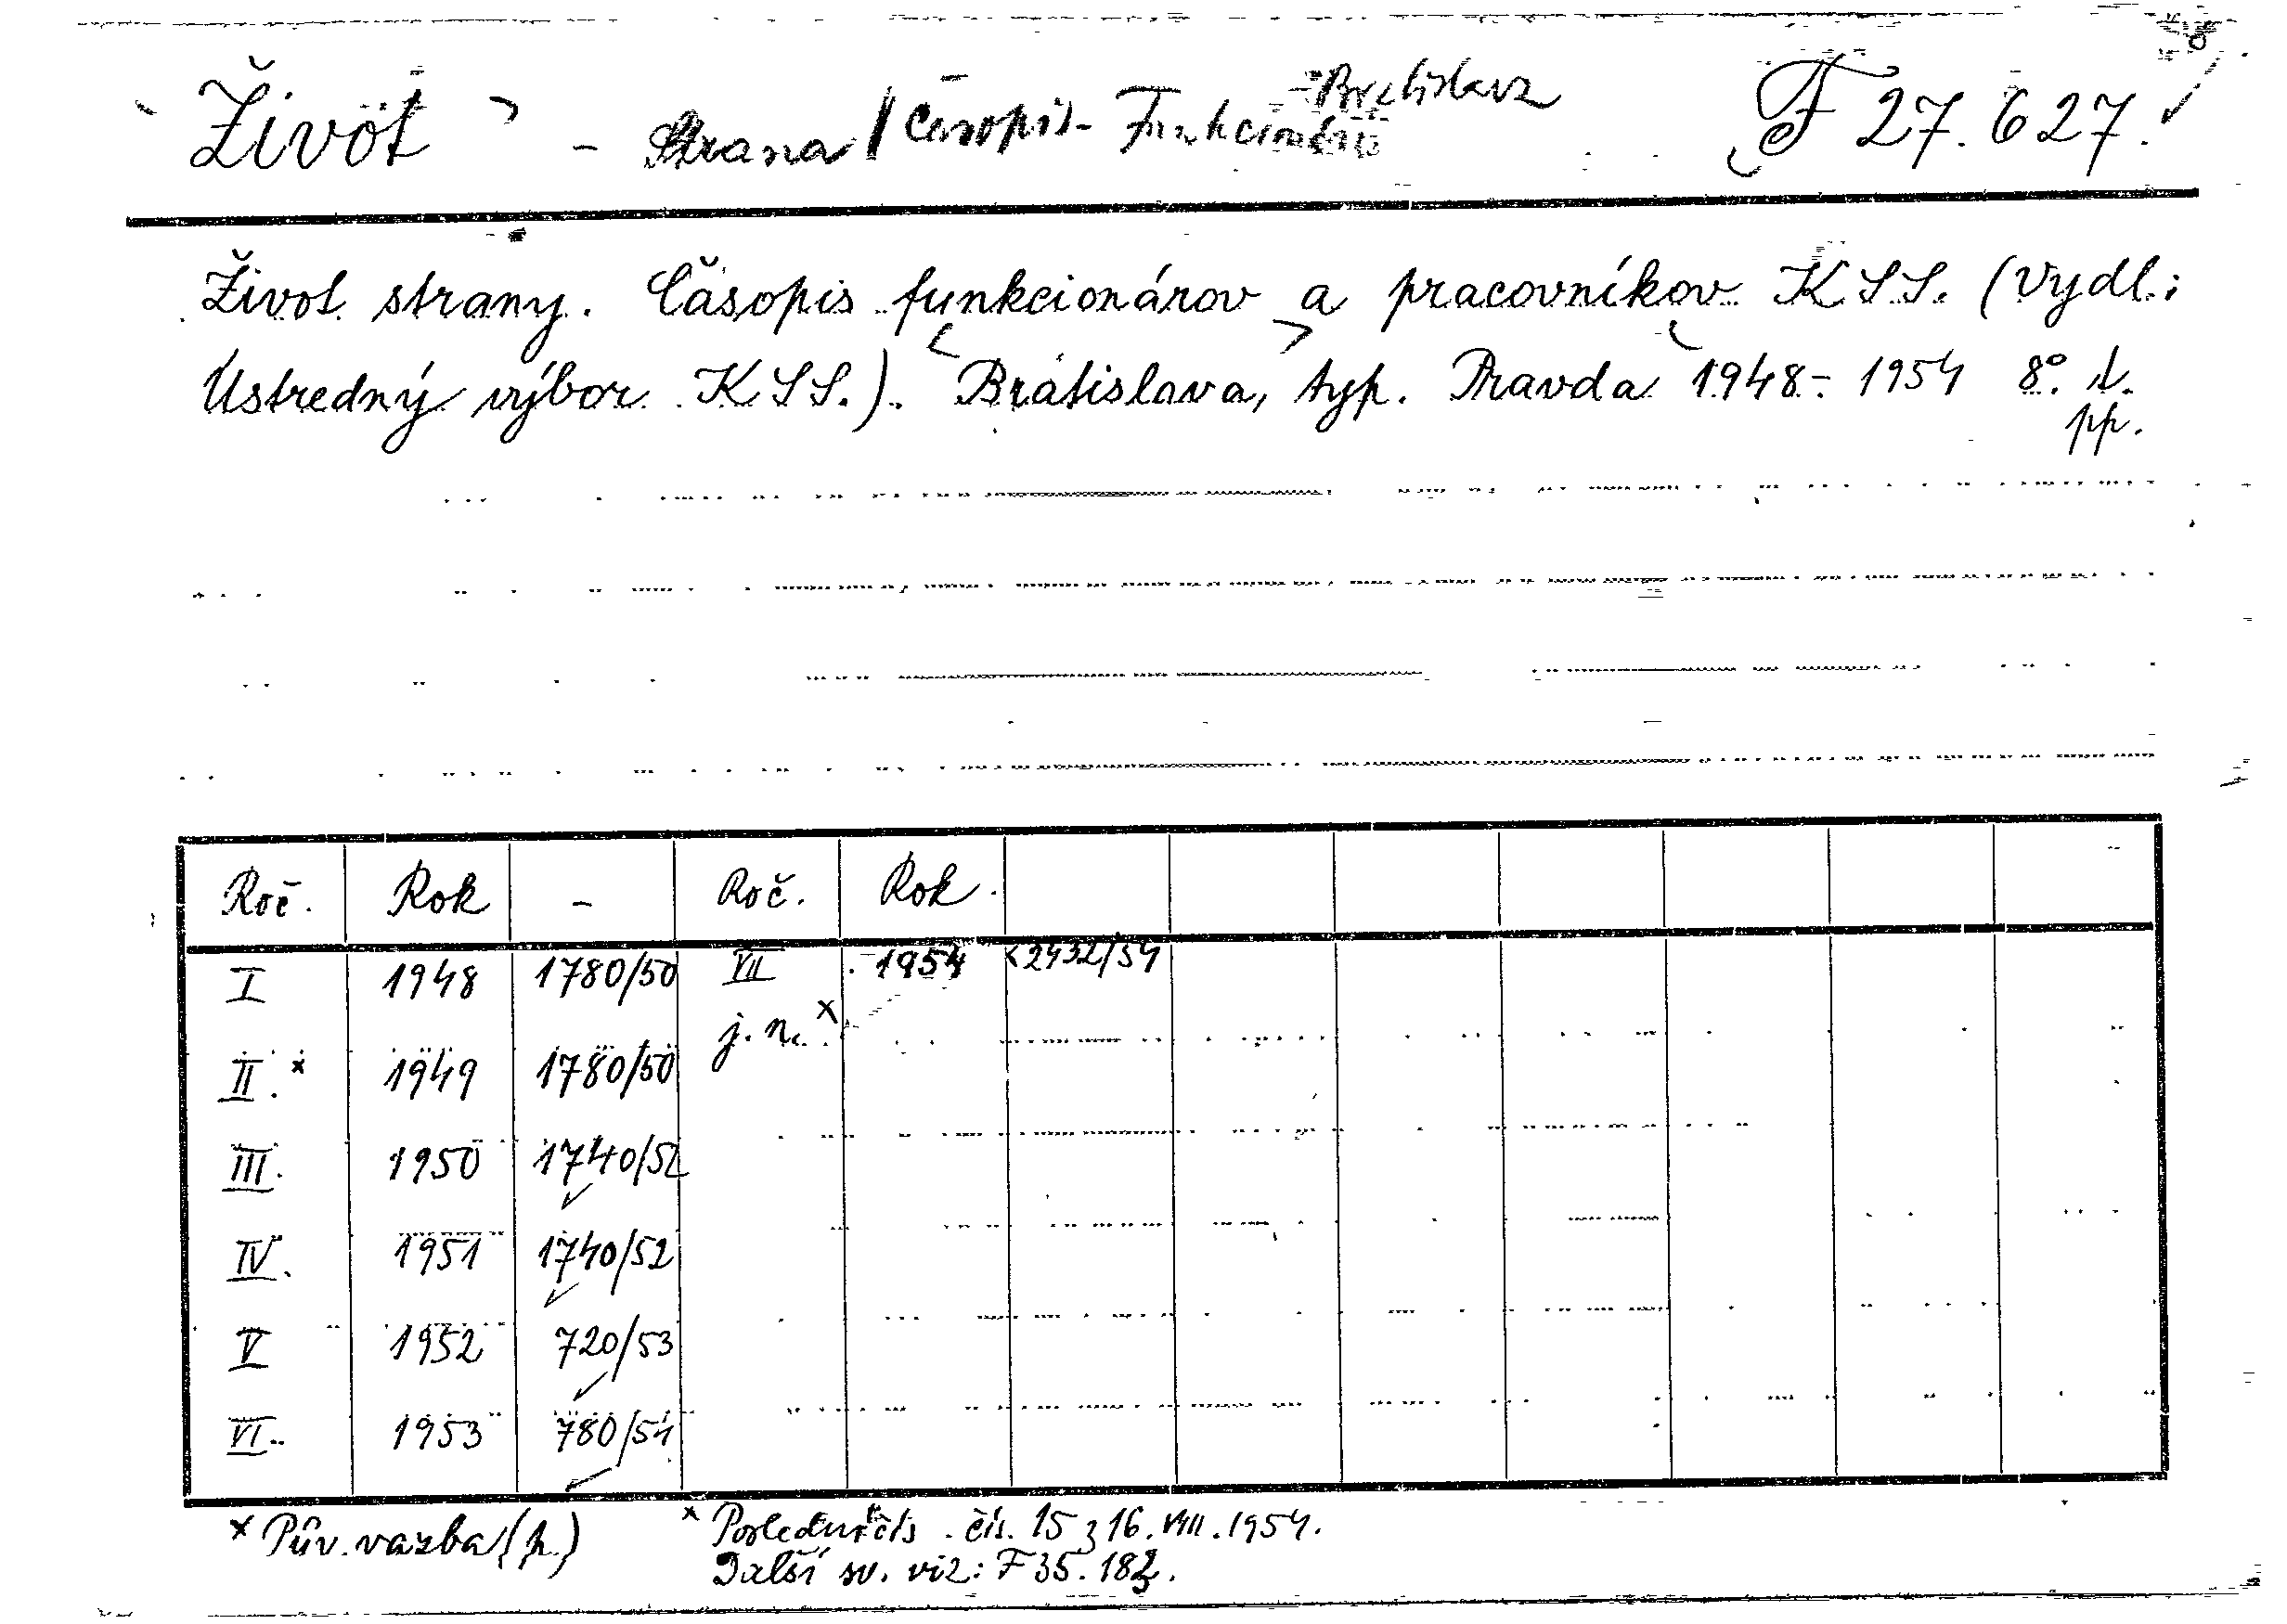 Život - Strana / Časopis - Funkcionáři Bratislava F 27.627.
Život strany. Časopis funkcionárov a pracovníkov KSS. (Vydl.:
Ústredný výbor KSS.). Bratislava, typ. Pravda 1948 - 1954 8°.
pp.
Roč. Rok - Roč. Rok
I 1948 1780/50 VII 1954 2432/54
j. n. x
II. x 1949 1780/50
III. 1950 1740/52
IV. 1951 1740/52
V 1952 720/53
VI. 1953 780/54
x Pův. vazba (p.) x Poslední čís. čís. 15 z 16. VIII. 1954.
Další sv. viz: F 35.